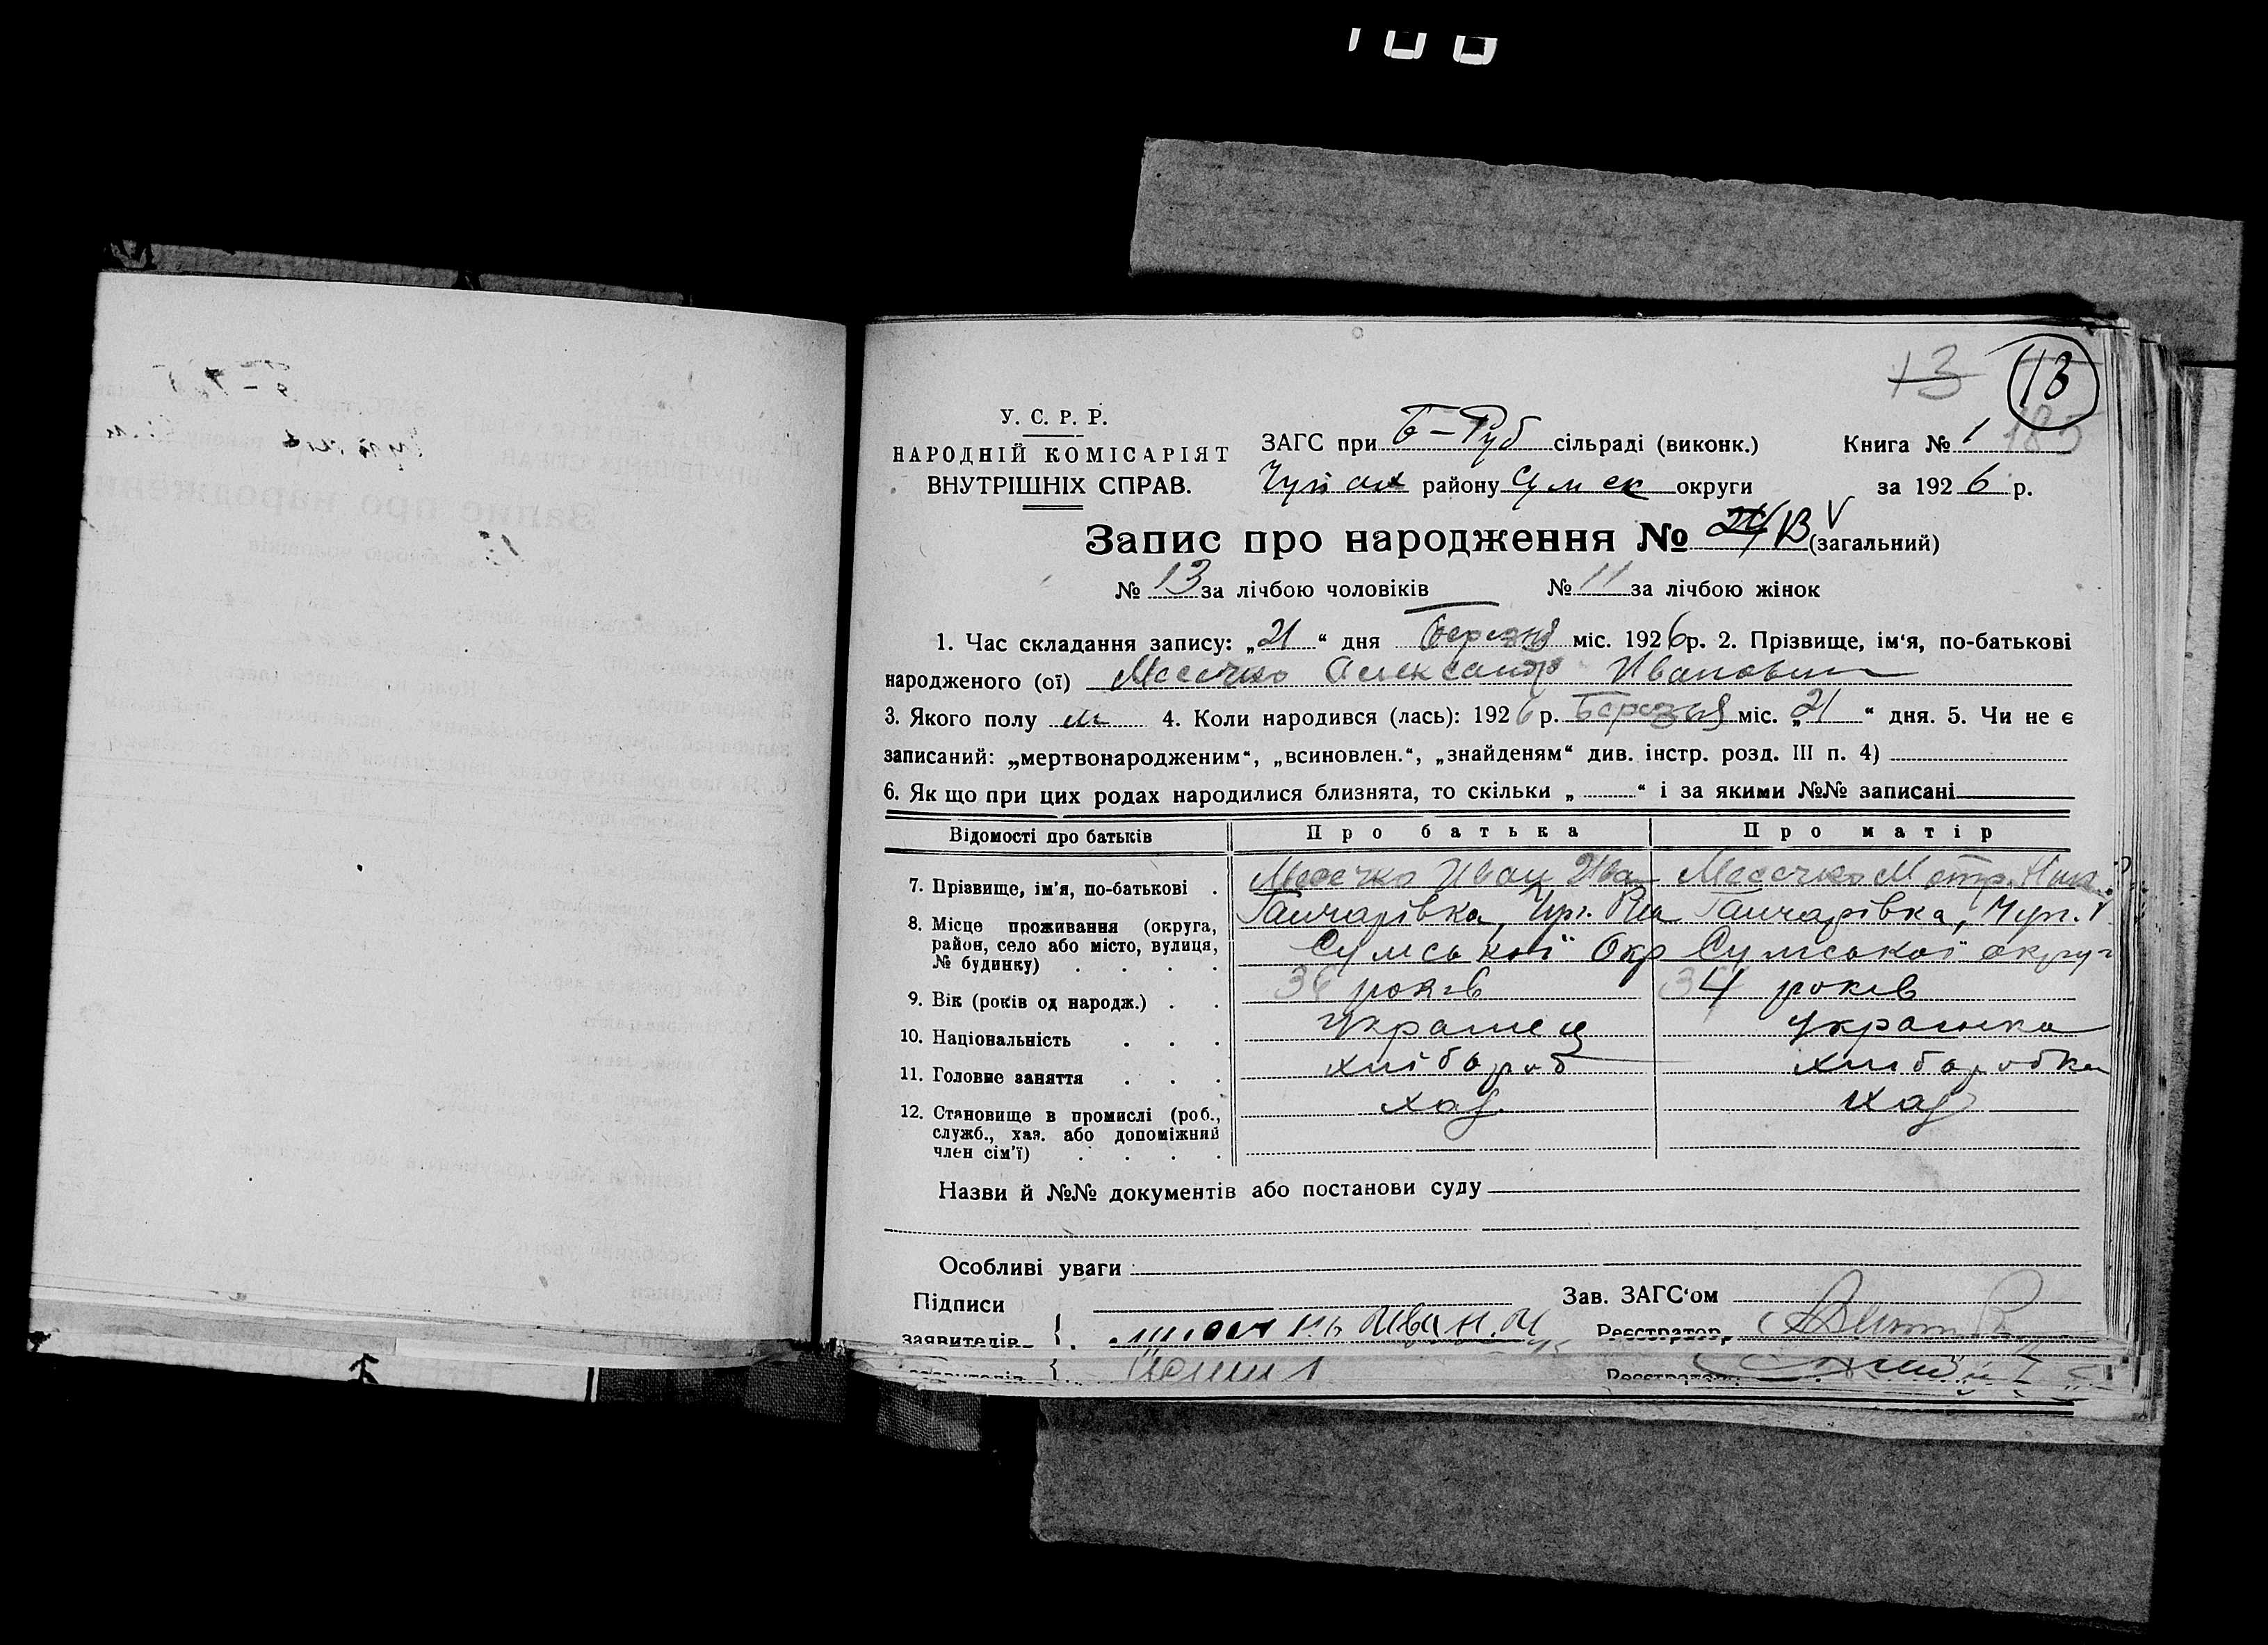 13 13
185
У. С. Р. Р.
НАРОДНІЙ КОМІСАРІЯТ
ВНУТРІШНІХ СПРАВ.
ЗАГС при Б-Руб сільраді (виконк.) Книга № 1
району Сумск округи за 1926 р.
Запис про народження № 24/13 (загальний)
№ 13 за лічбою чоловіків № 11 за лічбою жінок
1. Час складання запису: „21“ дня Березня міс. 1926 р. 2. Прізвище, ім‘я, по-батькові
народженого (ої) Александр Иванович
3. Якого полу м 4. Коли народився (лась): 1926 р. Березня міс. „21“ дня. 5. Чи не є
записаний: „мертвонародженим“, „всиновлен.“, „знайденям“ див. інстр. розд. III п. 4)
6. Як що при цих родах народилися близнята, то скільки „ “ і за якими №№ записані
Відомості про батьків Про батька Про матір
7. Прізвище, ім'я, по-батькові . Иван Ива
8. Місце проживання (округа, Ганчарівка, Чуп. Р-на Ганчарівка, Чуп.
район, село або місто, вулиця, Сумської Окр Сумської округ
№ будинку) . . . .
9. Вік (років од народж.) . . 36 років 34 років
10. Національність . . . украінец украінка
11. Головне заняття . . . хлібороб хліборобка
12. Становище в промислі (роб., хаз. хаз
служб., хаз. або допоміжний
член сім'ї) . . . .
Назви й №№ документів або постанови суду
Особливі уваги
Підписи Зав. ЗАГС‘ом
заявителів Иван. И Реєстратор
Реєстратор